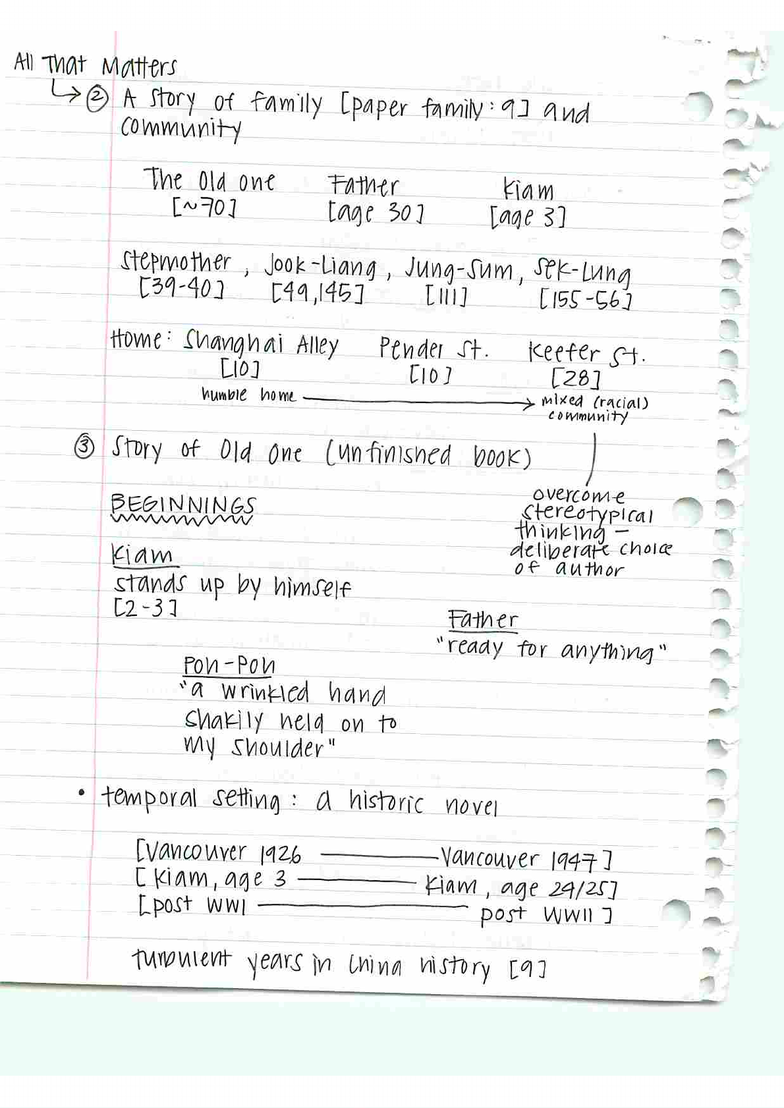 All That Matters
↳ ② A story of family [paper family: 9] and
community
The Old one Father Kiam
[~70] [age 30] [age 3]
Stepmother, Jook-Liang, Jung-Sum, Sek-Lung
[39-40] [49,145] [111] [155-56]
Home: Shanghai Alley Pender St. Keefer St.
[10] [10] [28]
humble home → mixed (racial)
community
③ Story of Old One (unfinished book)
overcome
stereotypical
thinking -
deliberate choice
of author
BEGINNINGS
Kiam
stands up by himself
[2-3]
Father
"ready for anything"
Poh-Poh
"a wrinkled hand
shakily held on to
my shoulder"
• temporal setting: a historic novel
[Vancouver 1926 — Vancouver 1947]
[Kiam, age 3 — Kiam, age 24/25]
[post WWI — post WWII]
turbulent years in China history [9]